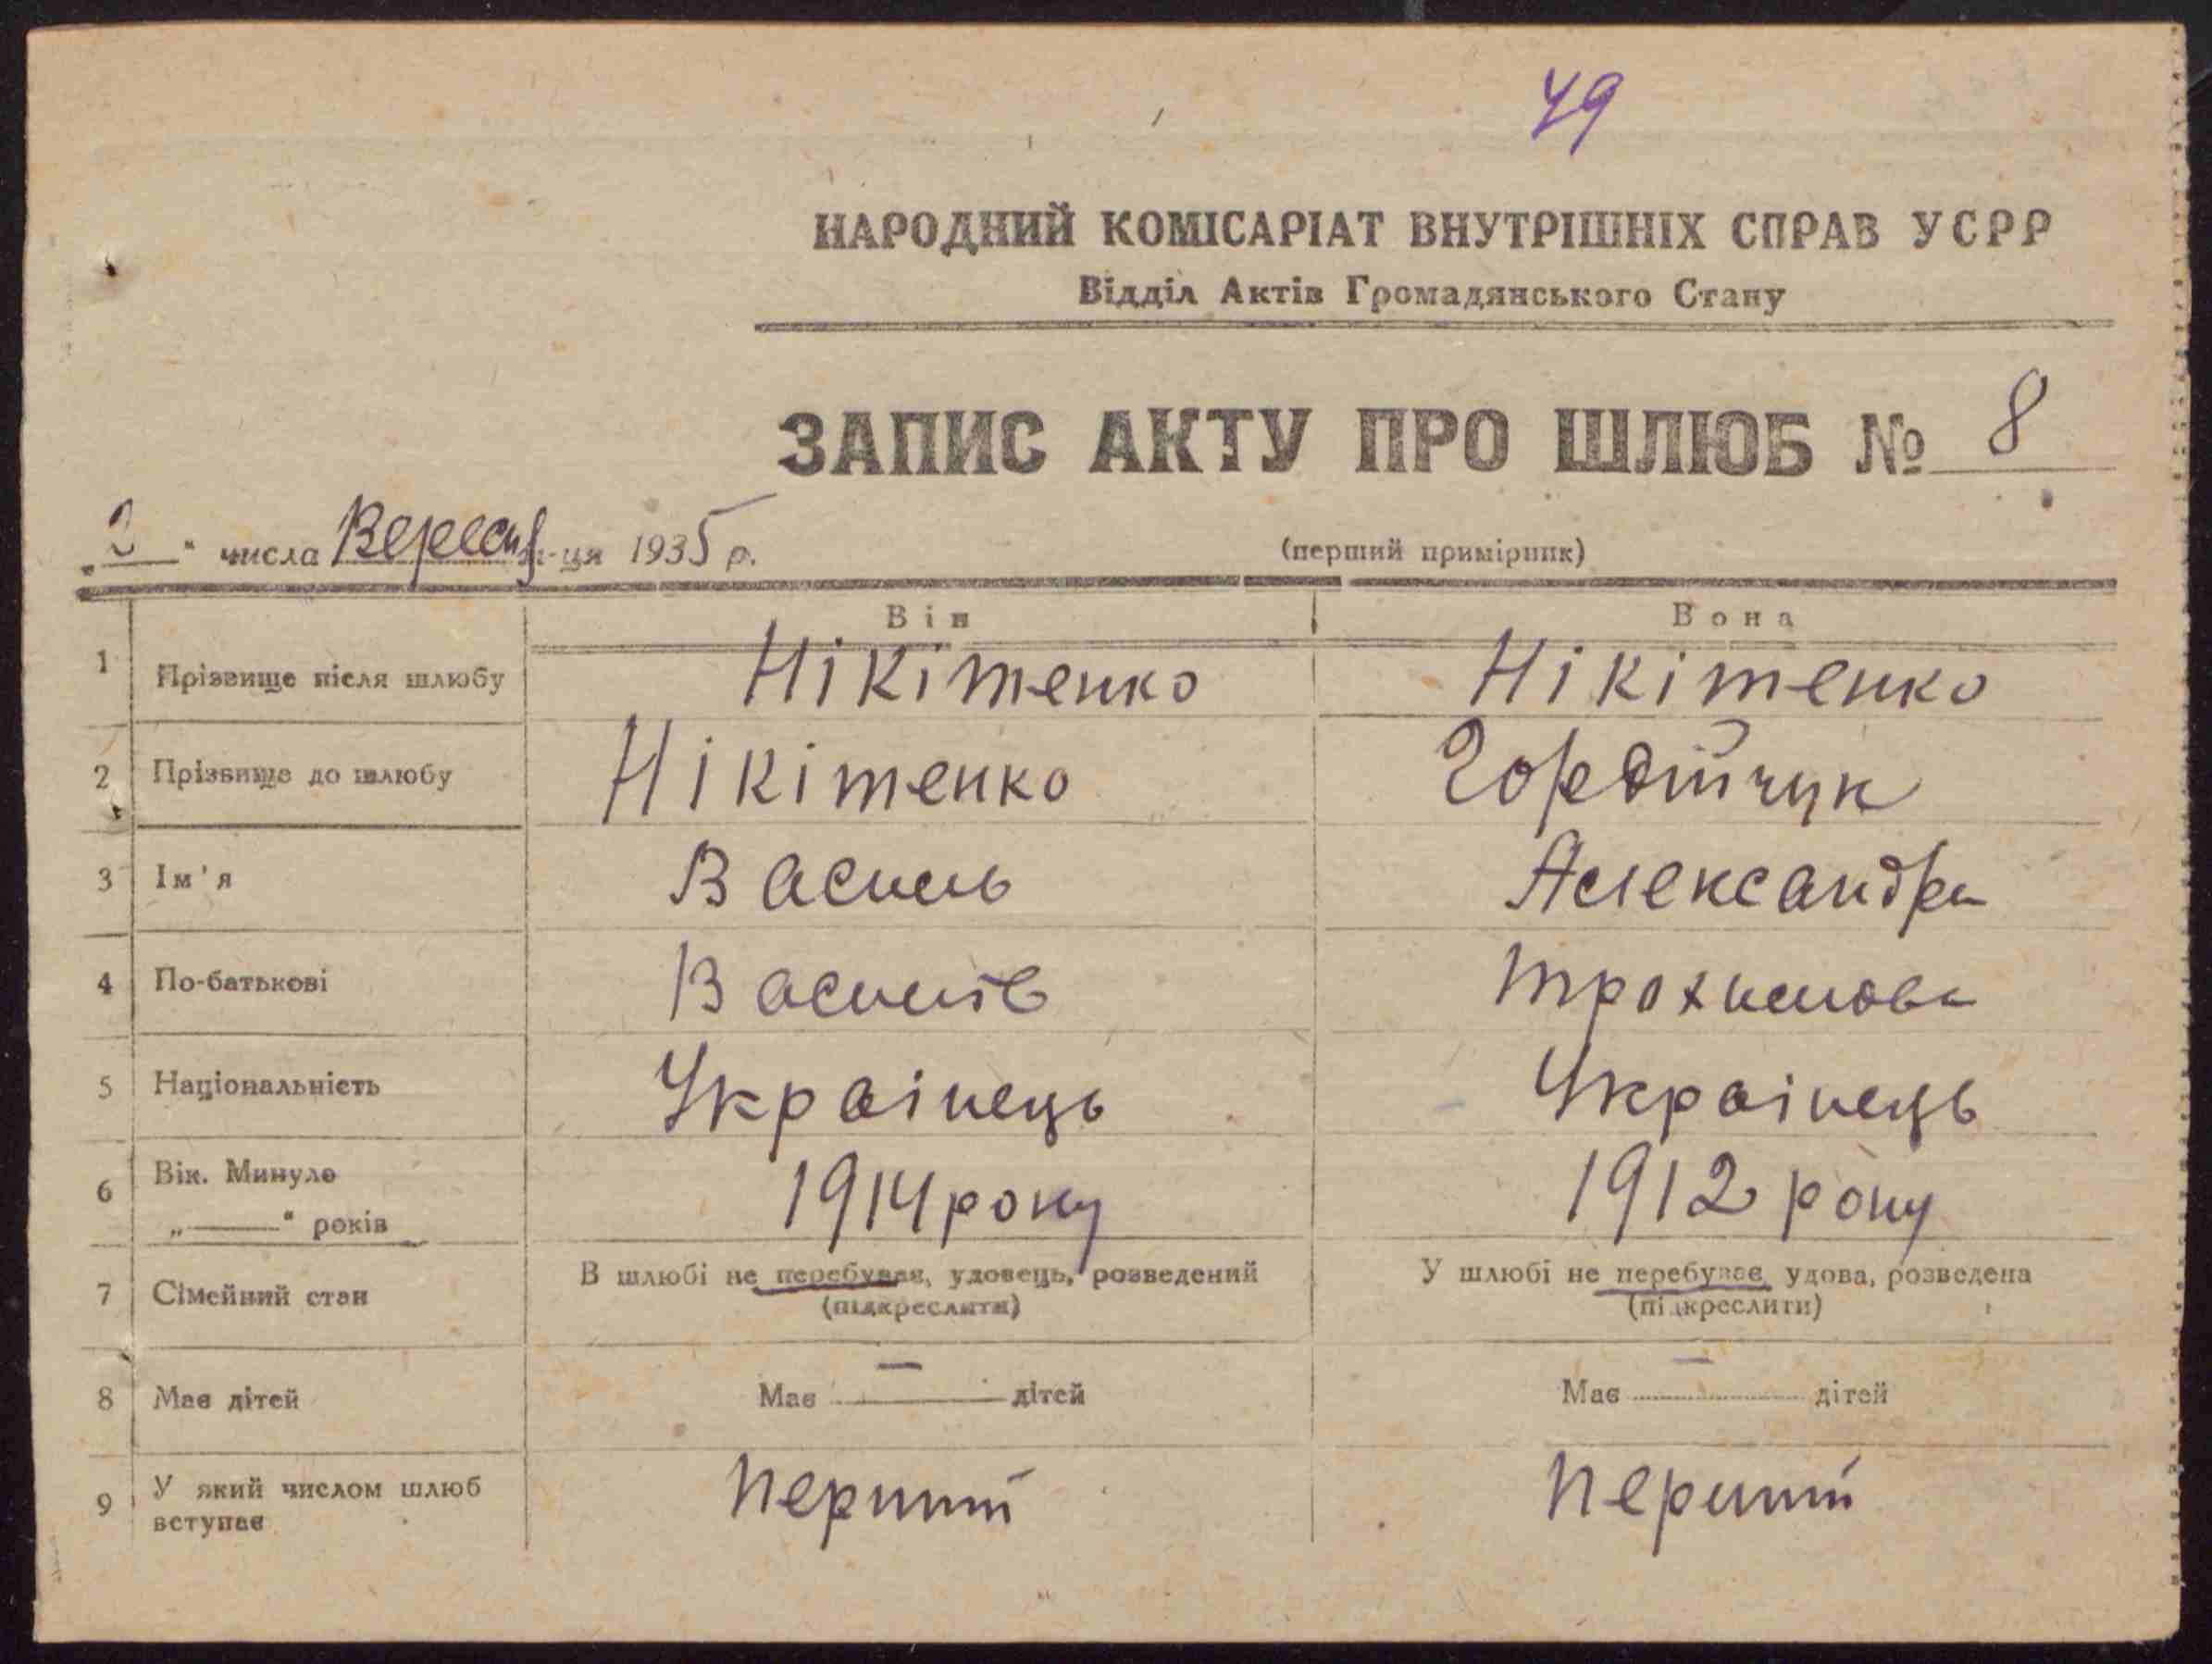 49
НАРОДНИЙ КОМІСАРІАТ ВНУТРІШНІХ СПРАВ УСРР
Відділ Актів Громадянського Стану
ЗАПИС АКТУ ПРО ШЛЮБ № 8
„2“ числа Вересня м-ця 1935 р. (перший примірник)
Він Вона
1 Прізвище після шлюбу Нікітенко Нікітенко
2 Прізвище до шлюбу Нікітенко Гордійчук
3 Ім'я Василь Александра
4 По-батькові Василів Трохимова
5 Національність Українець Українець
6 Вік. Минуло 1914 року 1912 року
„——“ років
7 Сімейний стан В шлюбі не перебував, удовець, розведений У шлюбі не перебуває, удова, розведена
(підкреслити) (підкреслити)
8 Має дітей Має — дітей Має — дітей
9 У який числом шлюб вступає Перший Перший